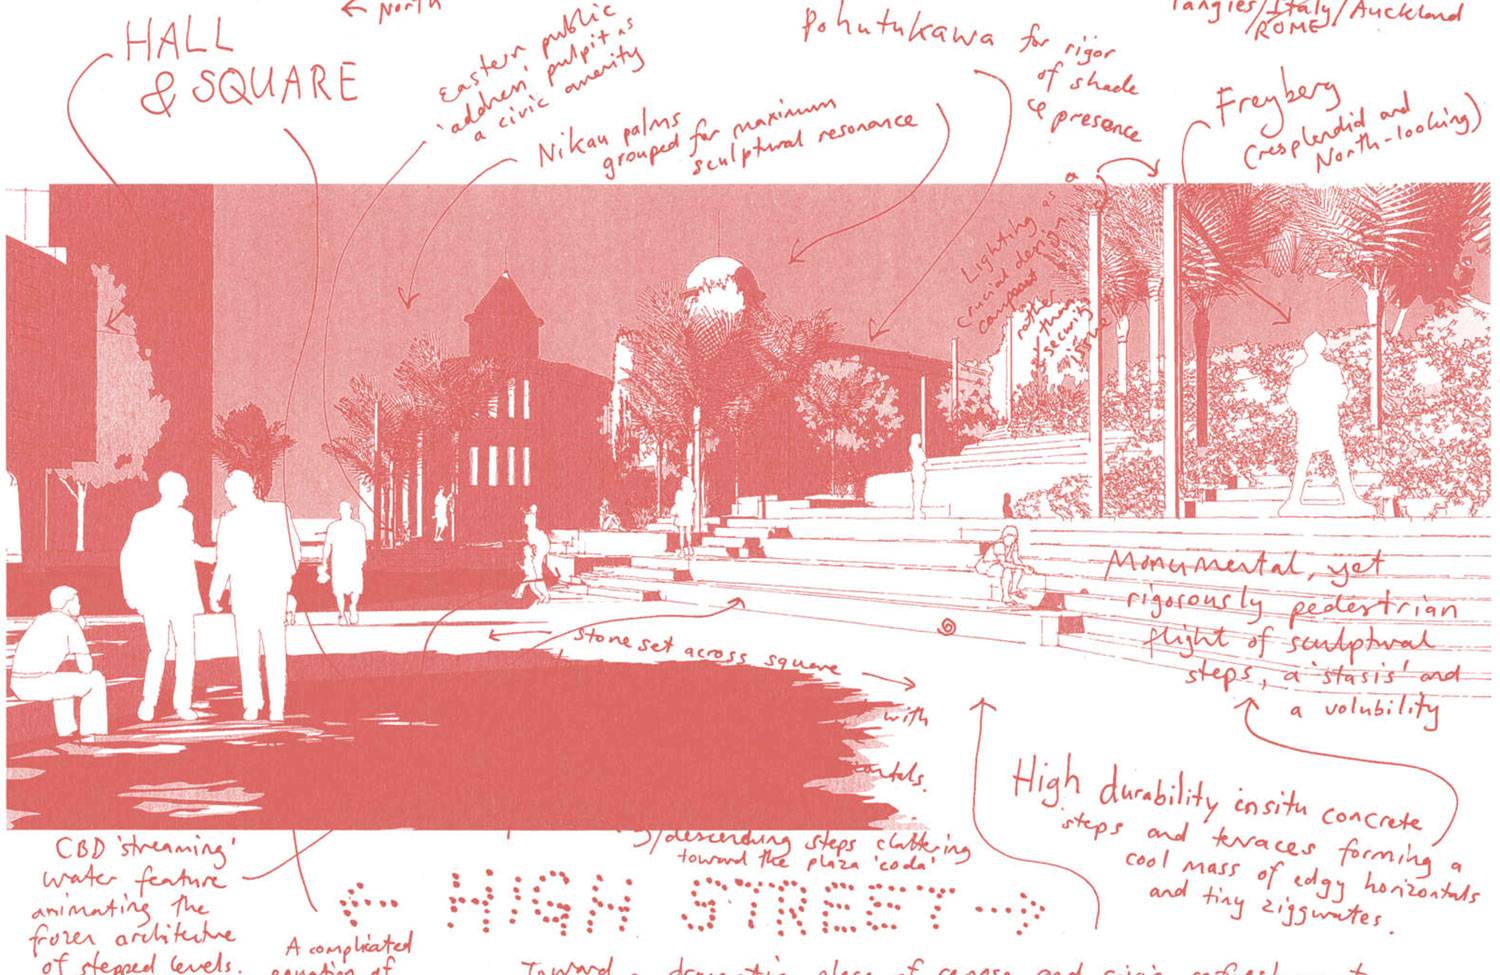 ← North
HALL
& SQUARE
Eastern public
'address' pulpit as
a civic amenity
Nikau palms
grouped for maximum
sculptural resonance
Pohutukawa for rigor
of shade
& presence
Tangies/Italy/Auckland
ROME
Freyberg
(resplendid and
North-looking)
Lighting as
a
crucial design
component
rather
than
security
issue
Monumental, yet
rigorously pedestrian
flight of sculptural
steps, a 'stasis' and
a volubility
Stone set across square
with
High durability insitu concrete
steps and terraces forming a
cool mass of edgy horizontals
and tiny ziggurates.
/descending steps clattering
toward the plaza 'coda'
← HIGH STREET →
CBD 'streaming'
water feature
animating the
frozen architecture
of stepped levels.
A complicated
equation of
Toward a dramatic place of
and